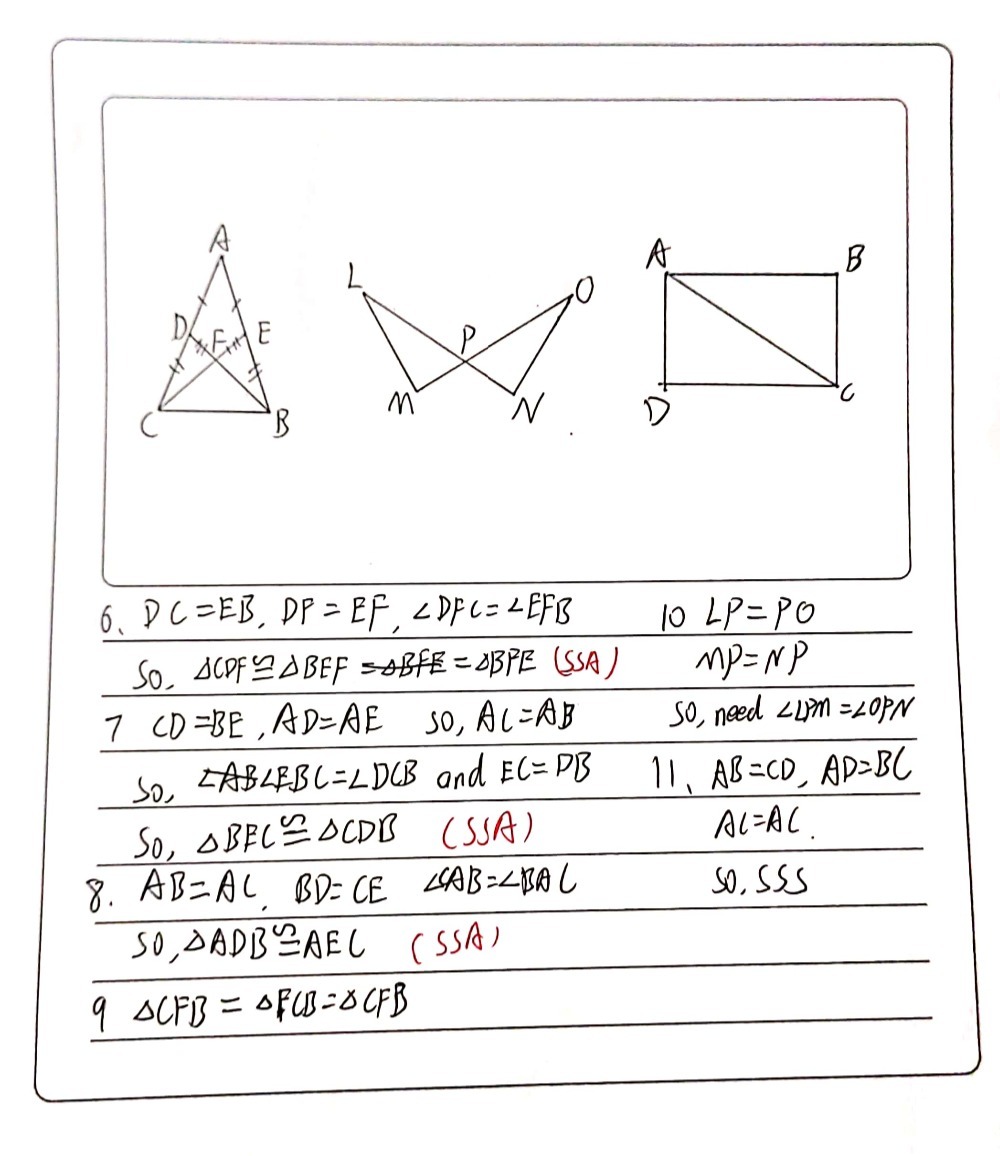 A
D F E
C B
L O
P
M N
A B
D C
6、DC=EB, DF=EF, ∠DFC=∠EFB
So, △CDF≌△BEF =△BFE (SSA)
7 CD=BE, AD=AE so, AC=AB
So, ∠EBC=∠DCB and EC=DB
So, △BEC≌△CDB (SSA)
8. AB=AC, BD=CE ∠CAB=∠BAC
SO, △ADB≌AEC (SSA)
9 △CFB = △FCB=△CFB
10 LP=PO
MP=NP
SO, need ∠LPM=∠OPN
11、AB=CD, AD=BC
AC=AC.
SO, SSS